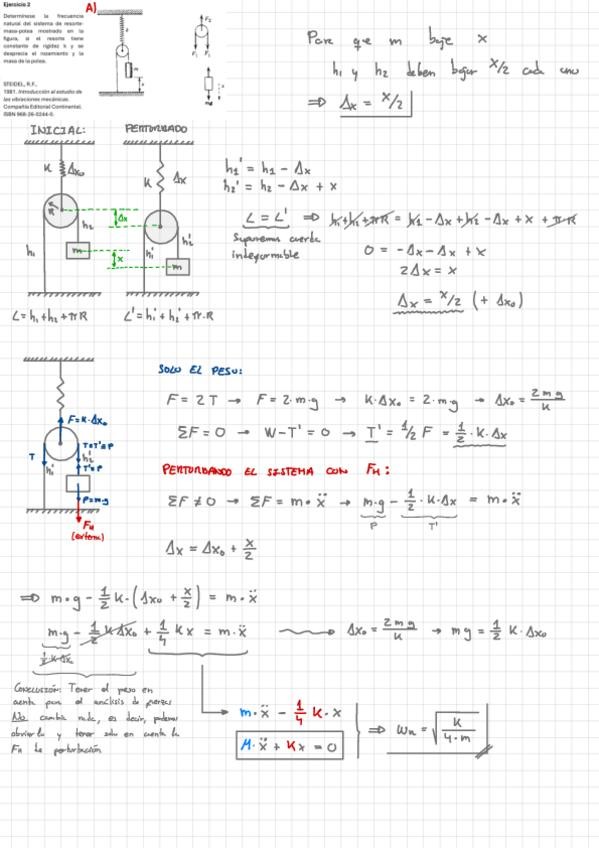 Ejercicio 2
Determínese la frecuencia
natural del sistema de resorte-
masa-polea mostrado en la
figura, si el resorte tiene
constante de rigidez k y se
desprecia el rozamiento y la
masa de la polea.
STEIDEL, R.F.,
1981. Introducción al estudio de
las vibraciones mecánicas.
Compañía Editorial Continental.
ISBN 968-26-0244-0.
A)
Para que m baje x
h1 y h2 deben bajar x/2 cada uno
⇒ Δx = x/2
INICIAL:
PERTURBADO
K Δx₀
K Δx
R
h1
h2
m
Δx
x
h1'
h2'
m
L = h1 + h2 + πR
L' = h1' + h2' + π·R
h1' = h1 - Δx
h2' = h2 - Δx + x
L = L' ⇒ h1 + h2 + πR = h1 - Δx + h2 - Δx + x + πR
Suponemos cuerda
indeformable
0 = -Δx - Δx + x
2Δx = x
Δx = x/2 (+ Δx₀)
SOLO EL PESO:
F = 2T → F = 2·m·g → K·Δx₀ = 2·m·g → Δx₀ = 2mg/K
ΣF = 0 → W - T' = 0 → T' = 1/2 F = 1/2·K·Δx
F = K·Δx₀
T
T=T'=P
h1'
h2'
T'=P
P=m·g
FH
(externa)
PERTURBANDO EL SISTEMA CON FH:
ΣF ≠ 0 → ΣF = m·ẍ → m·g - 1/2·K·Δx = m·ẍ
P
T'
Δx = Δx₀ + x/2
⇒ m·g - 1/2 K·(Δx₀ + x/2) = m·ẍ
m·g - 1/2 K Δx₀ + 1/4 Kx = m·ẍ
Δx₀ = 2mg/K → mg = 1/2 K·Δx₀
1/2 K Δx₀
CONCLUSIÓN: Tener el peso en
cuenta para el análisis de fuerzas
NO cambia nada, es decir, podemos
obviarlo y tener solo en cuenta la
FH de perturbación
m·ẍ - 1/4 K·x
M·ẍ + Kx = 0
⇒ wn = √(K/4·m)